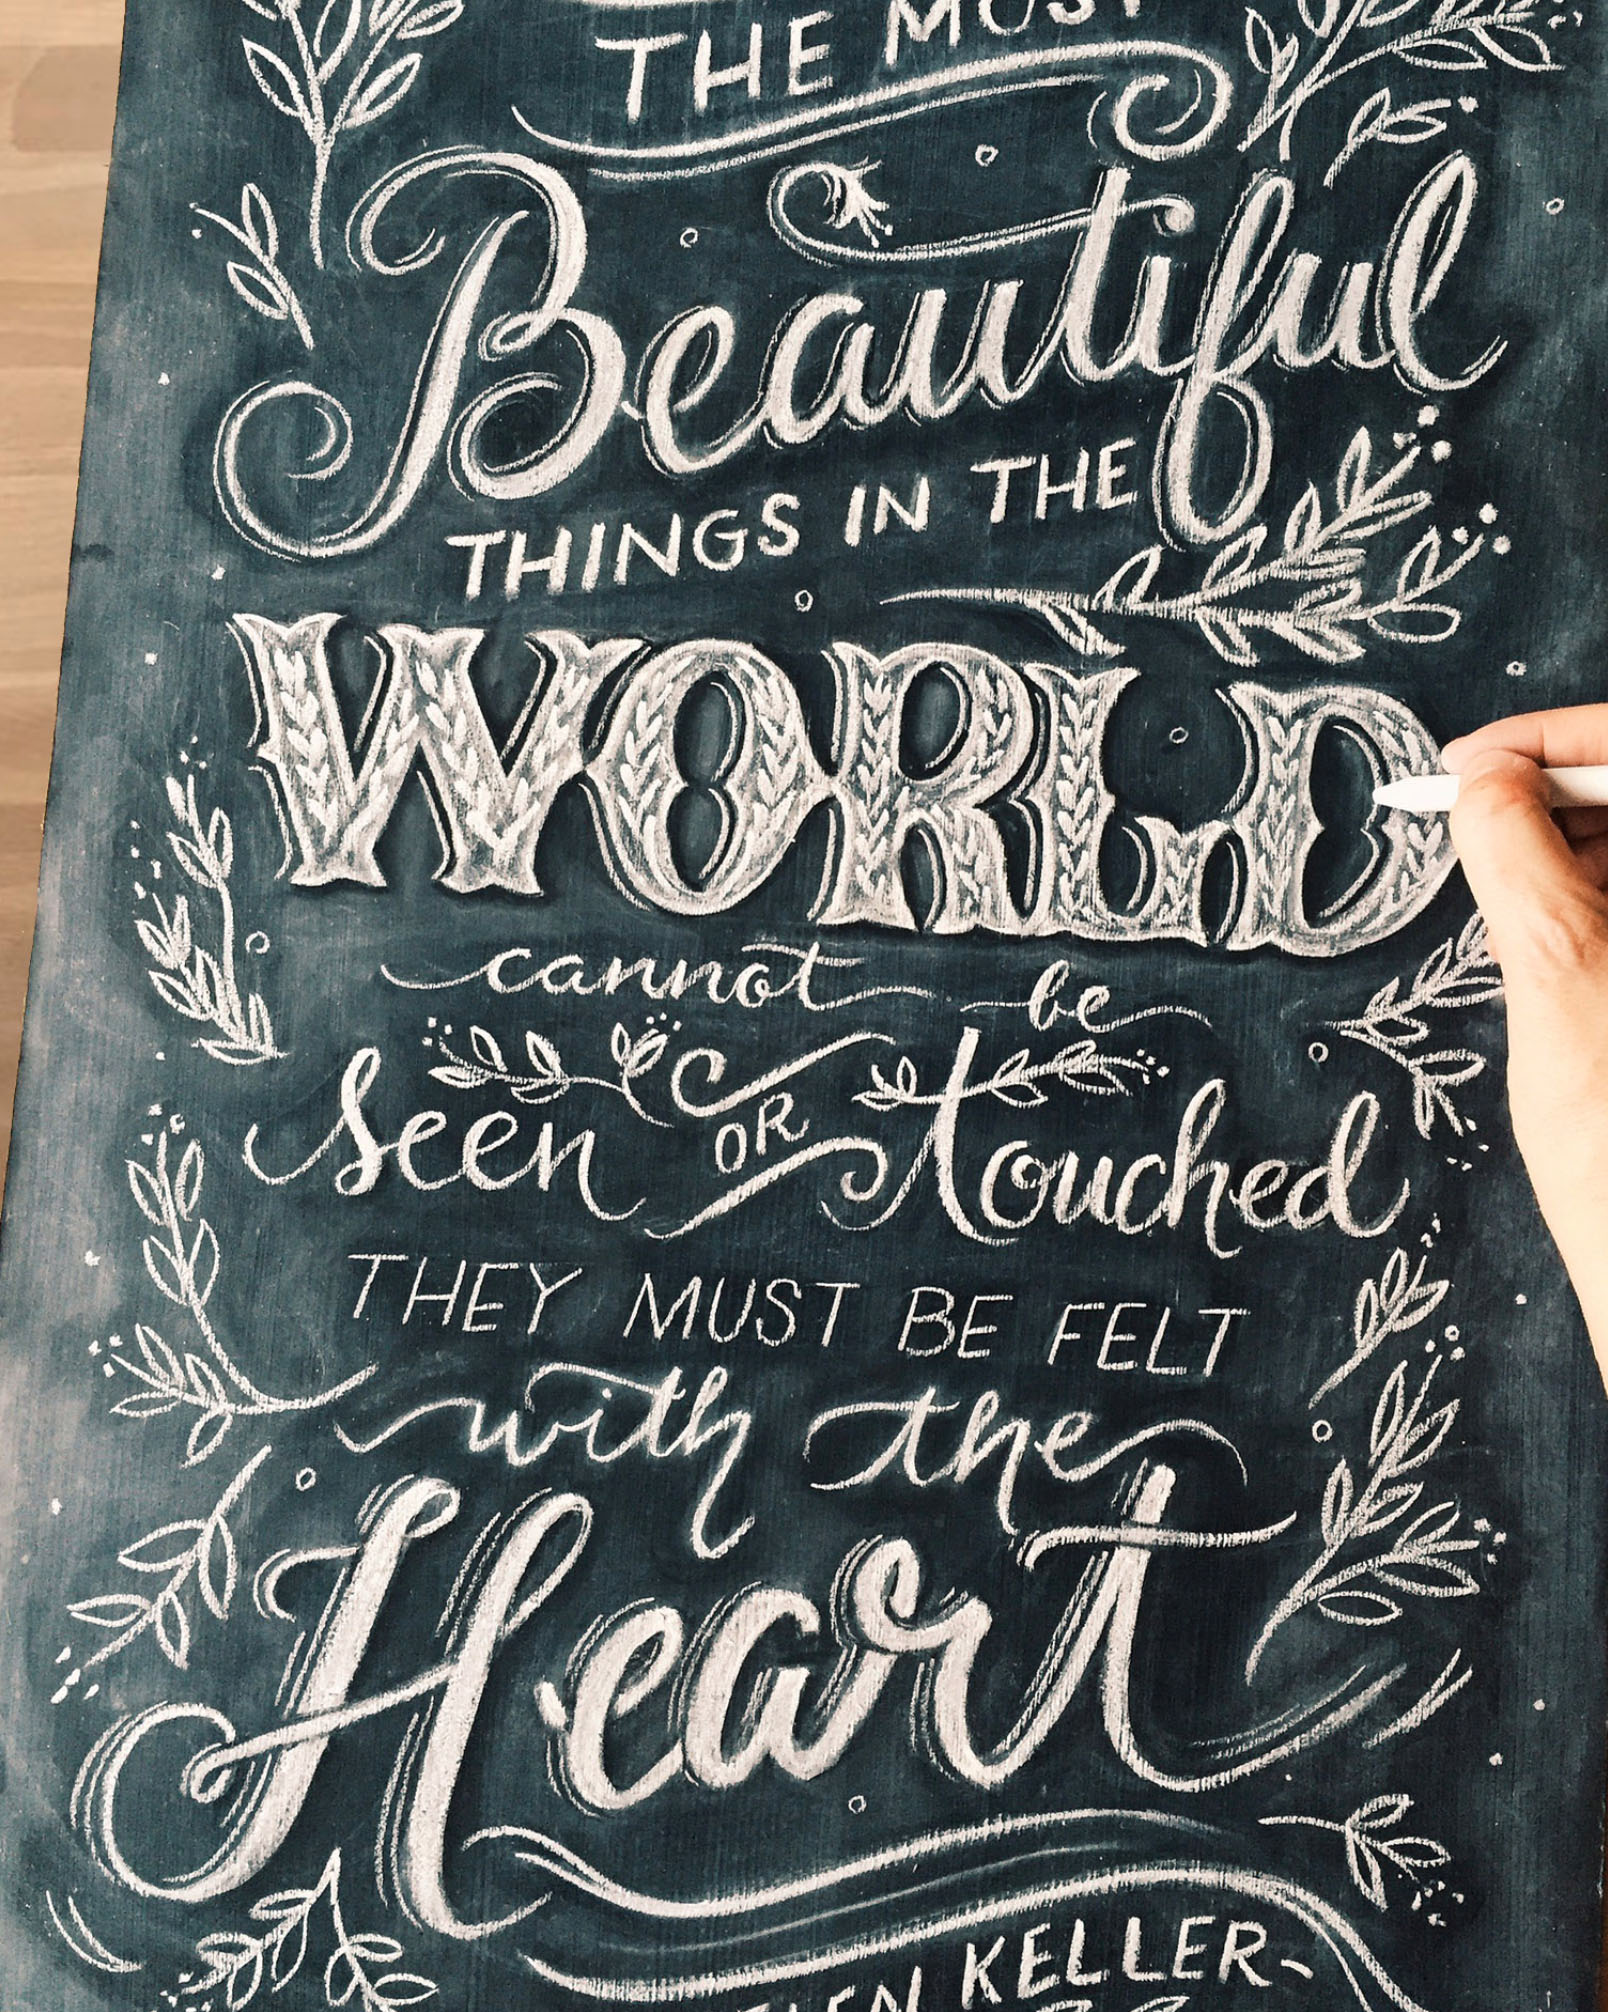 THE MOST
Beautiful
THINGS IN THE
WORLD
cannot be
seen OR touched
THEY MUST BE FELT
with the
Heart
KELLER-